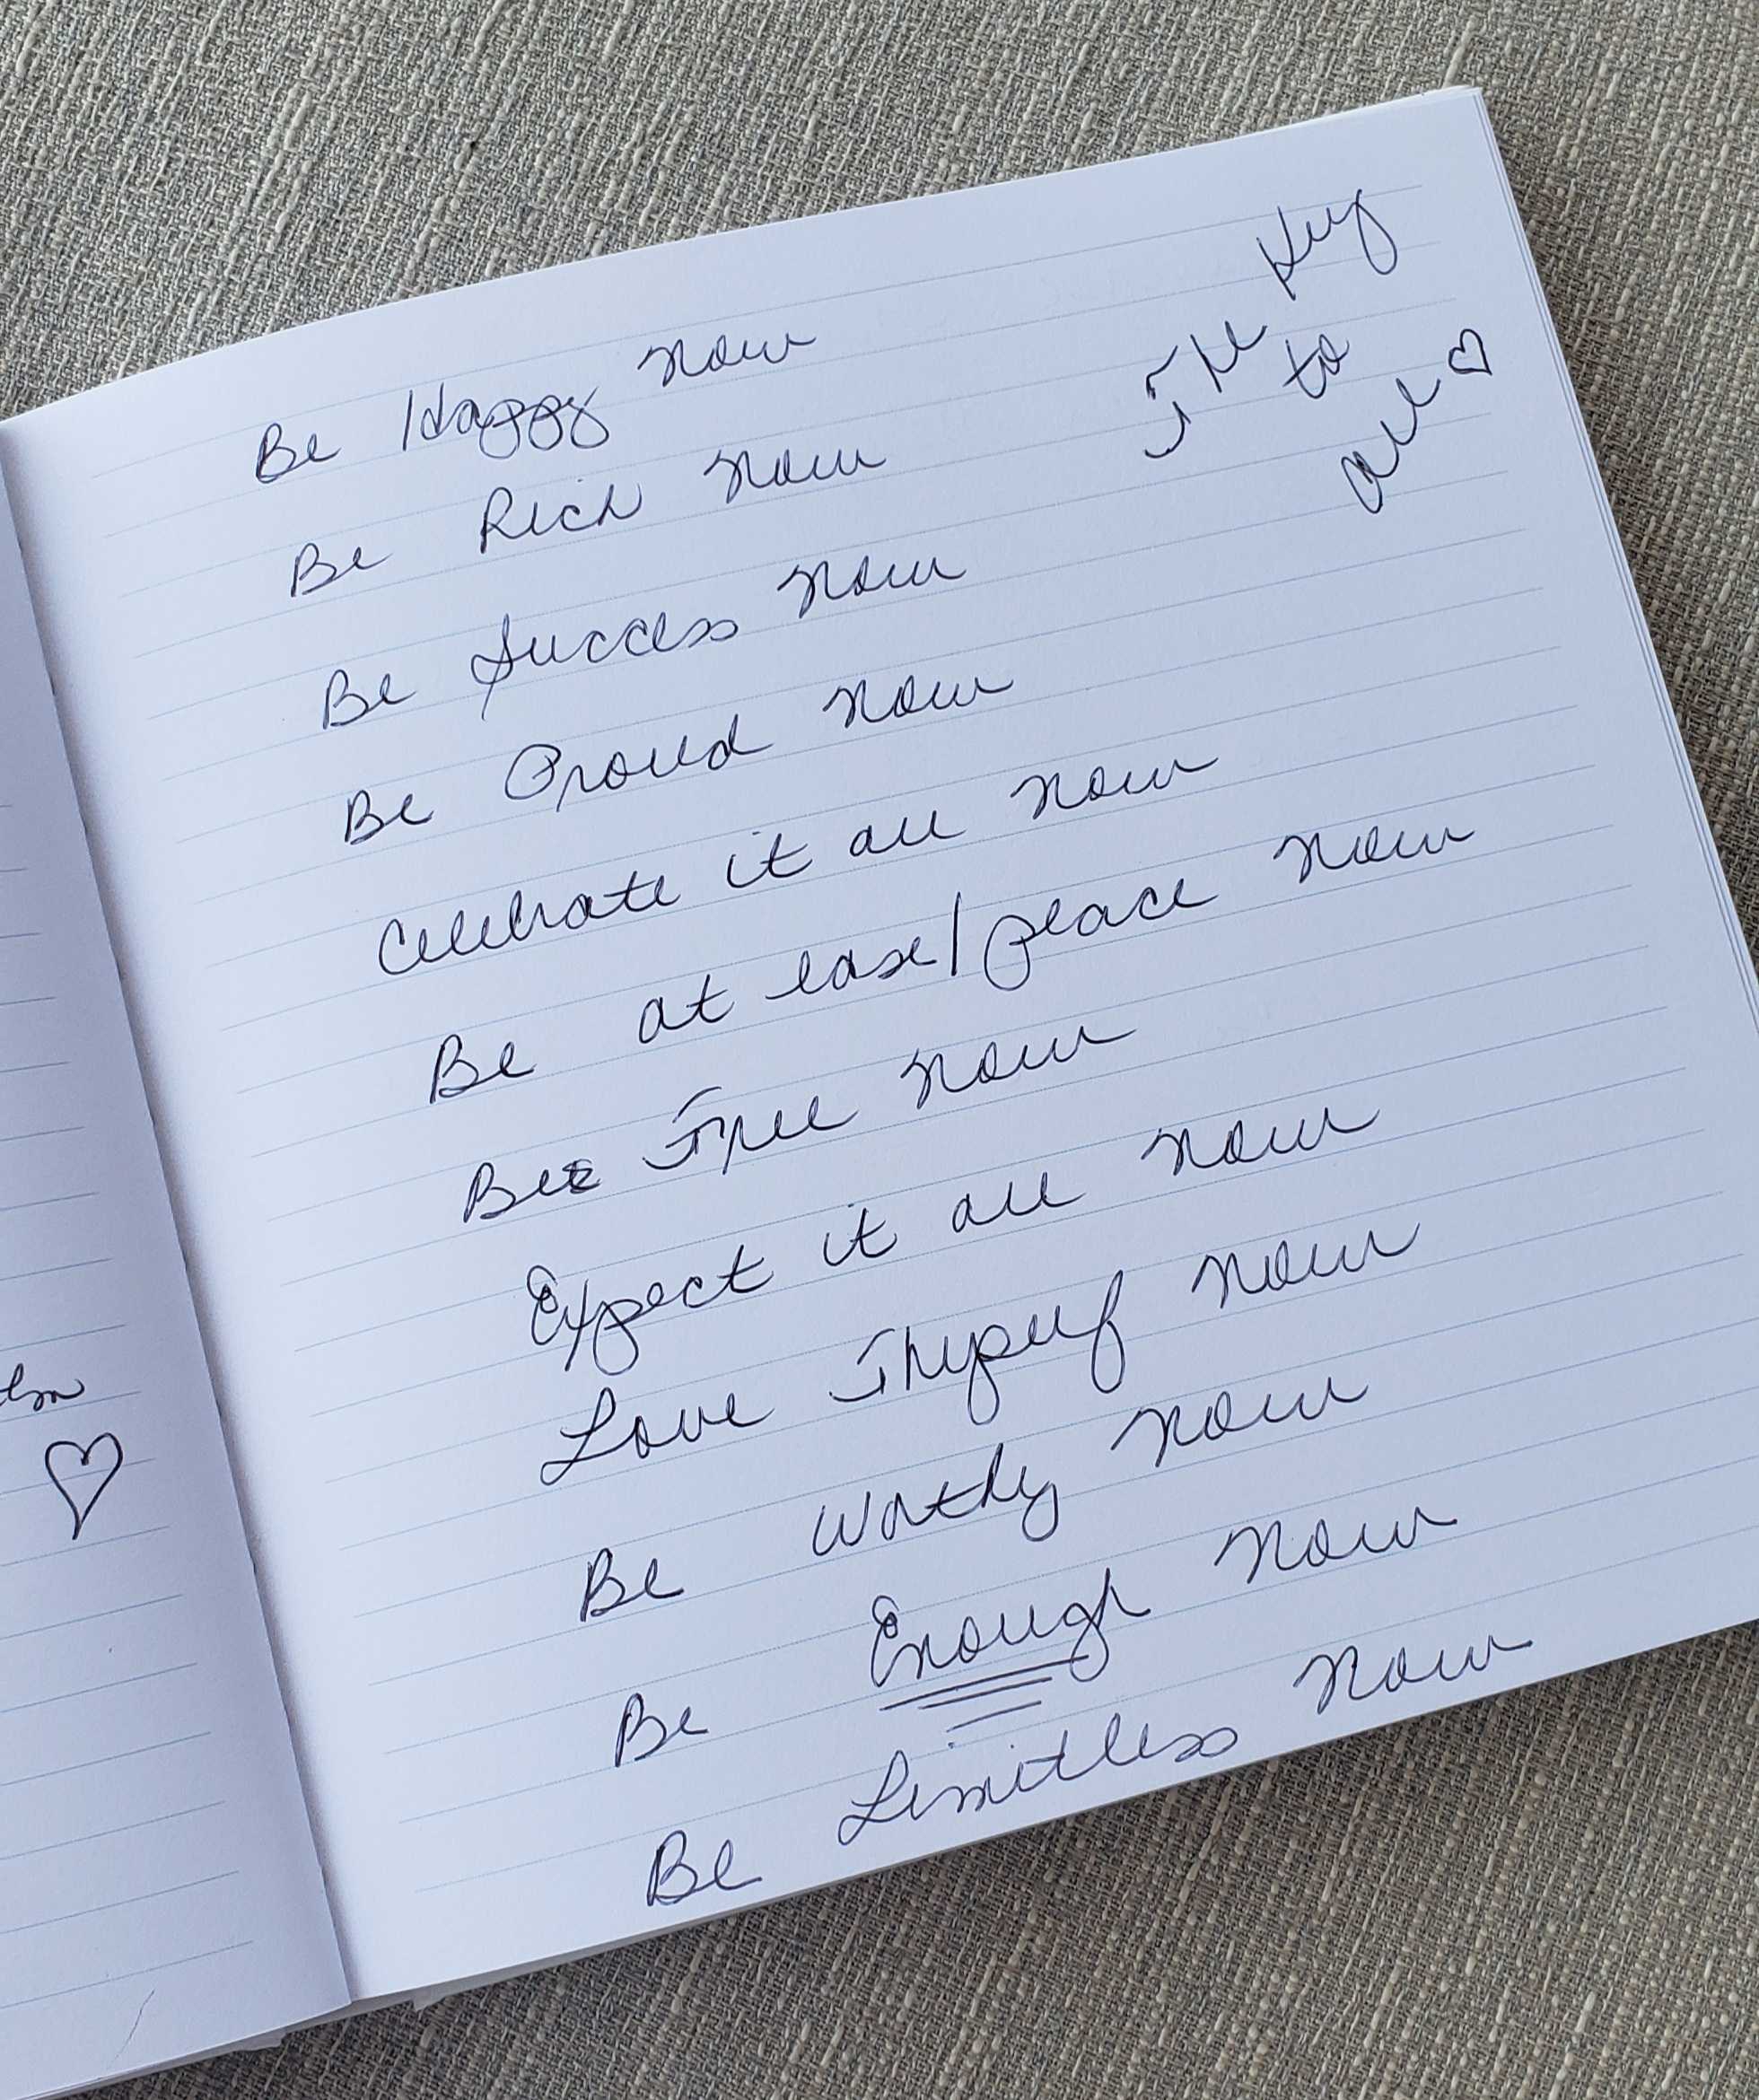 Be Happy Now
Be Rich Now
Be Success Now
Be Proud Now
Celebrate it all Now
Be at ease/peace Now
Bee Free Now
Expect it all Now
Love Thyself Now
Be Worthy Now
Be Enough Now
Be Limitless Now
The Key
to
all ♡